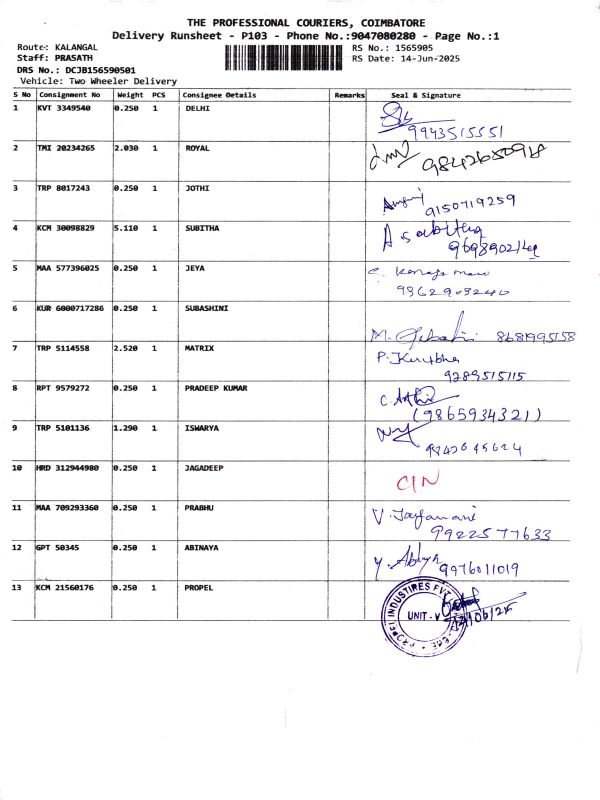 THE PROFESSIONAL COURIERS, COIMBATORE
Delivery Runsheet - P103 - Phone No.:9047080280 - Page No.:1
Route: KALANGAL
RS No.: 1565905
Staff: PRASATH
RS Date: 14-Jun-2025
DRS No.: DCJB156590501
Vehicle: Two Wheeler Delivery
S No Consignment No Weight PCS Consignee Details Remarks Seal & Signature
1 KVT 3349540 0.250 1 DELHI
9943515551
2 TMI 20234265 2.030 1 ROYAL
3 TRP 8017243 0.250 1 JOTHI
9150719259
4 KCM 30098829 5.110 1 SUBITHA
5 MAA 577396025 0.250 1 JEYA
9362903240
6 KUR 6000717286 0.250 1 SUBASHINI
7 TRP 5114558 2.520 1 MATRIX
9289515115
8 RPT 9579272 0.250 1 PRADEEP KUMAR
(9865934321)
9 TRP 5101136 1.290 1 ISWARYA
10 HRD 312944980 0.250 1 JAGADEEP
C/N
11 MAA 709293360 0.250 1 PRABHU
9922577633
12 GPT 50345 0.250 1 ABINAYA
9976011019
13 KCM 21560176 0.250 1 PROPEL
UNIT-V